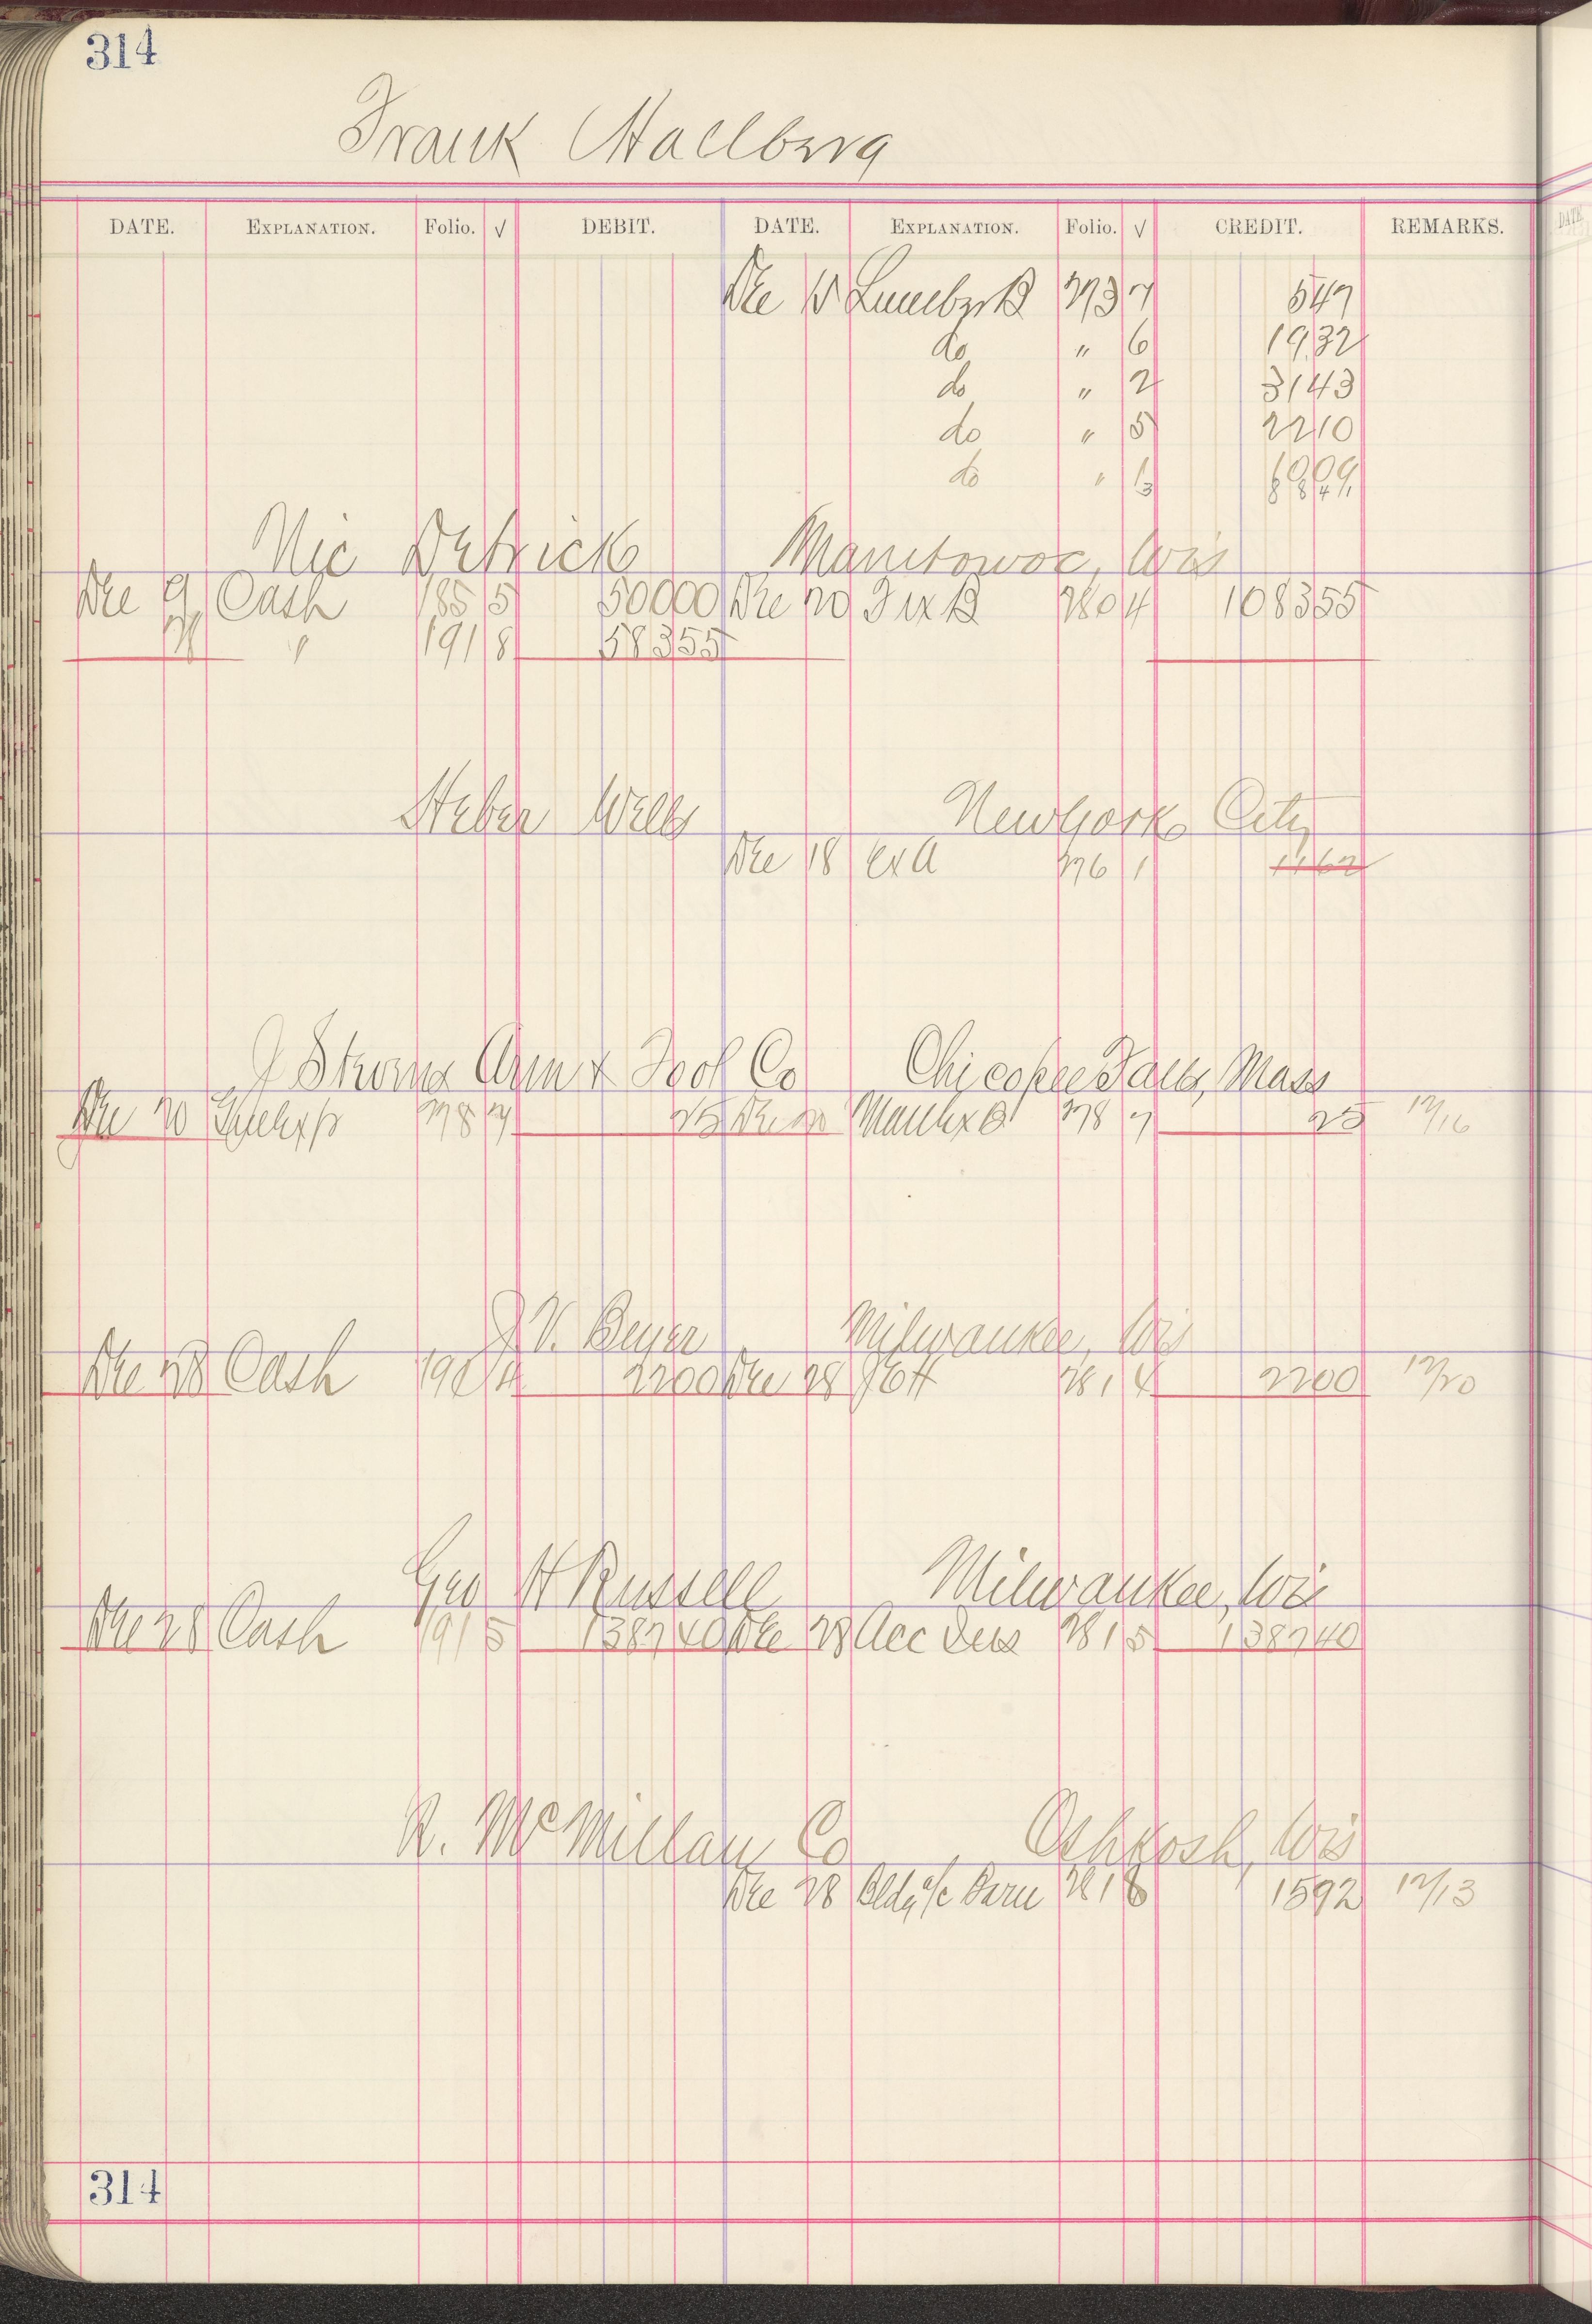 314
Frank Hallberg
DATE. EXPLANATION. Folio. √ DEBIT. DATE. EXPLANATION. Folio. √ CREDIT. REMARKS.
Dec 15 Lumber B 273 7 547
do " 6 1932
do " 2 3143
do " 5 2210
do "
Nic Detrick Manitowoc, Wis
Dec 9 Cash 185 5 50000 Dec 20 Fix B 280 4 108355
" 191 8 58355
Heber Wells New York City
Dec 18 Ex A 276 1 1162
J Stevens Arm & Tool Co Chicopee Falls, Mass
Dec 20 278 7 25 Dec 20 278 7 25 12/16
J V. Beyer Milwaukee, Wis
Dec 28 Cash 191 4 2200 Dec 28 281 4 2200 12/20
Geo H Russell Milwaukee, Wis
Dec 28 Cash 191 5 138740 Dec 28 Acc Ins 281 5 138740
R. McMillan Co Oshkosh, Wis
Dec 28 Bldg a/c Barn 281 8 1592 12/13
314